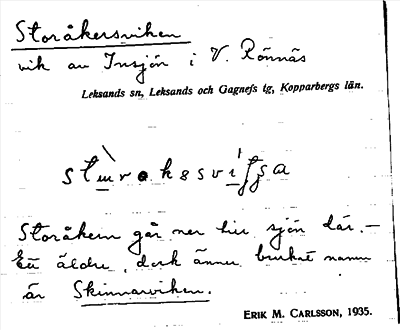 Storåkersviken
vik av Insjön i V. Rönnäs
Leksands sn, Leksands och Gagnefs tg, Kopparbergs län.
Storåkern går ner till sjön där. –
Ett äldre, dock ännu brukat namn
är Skinnarviken.
ERIK M. CARLSSON, 1935.